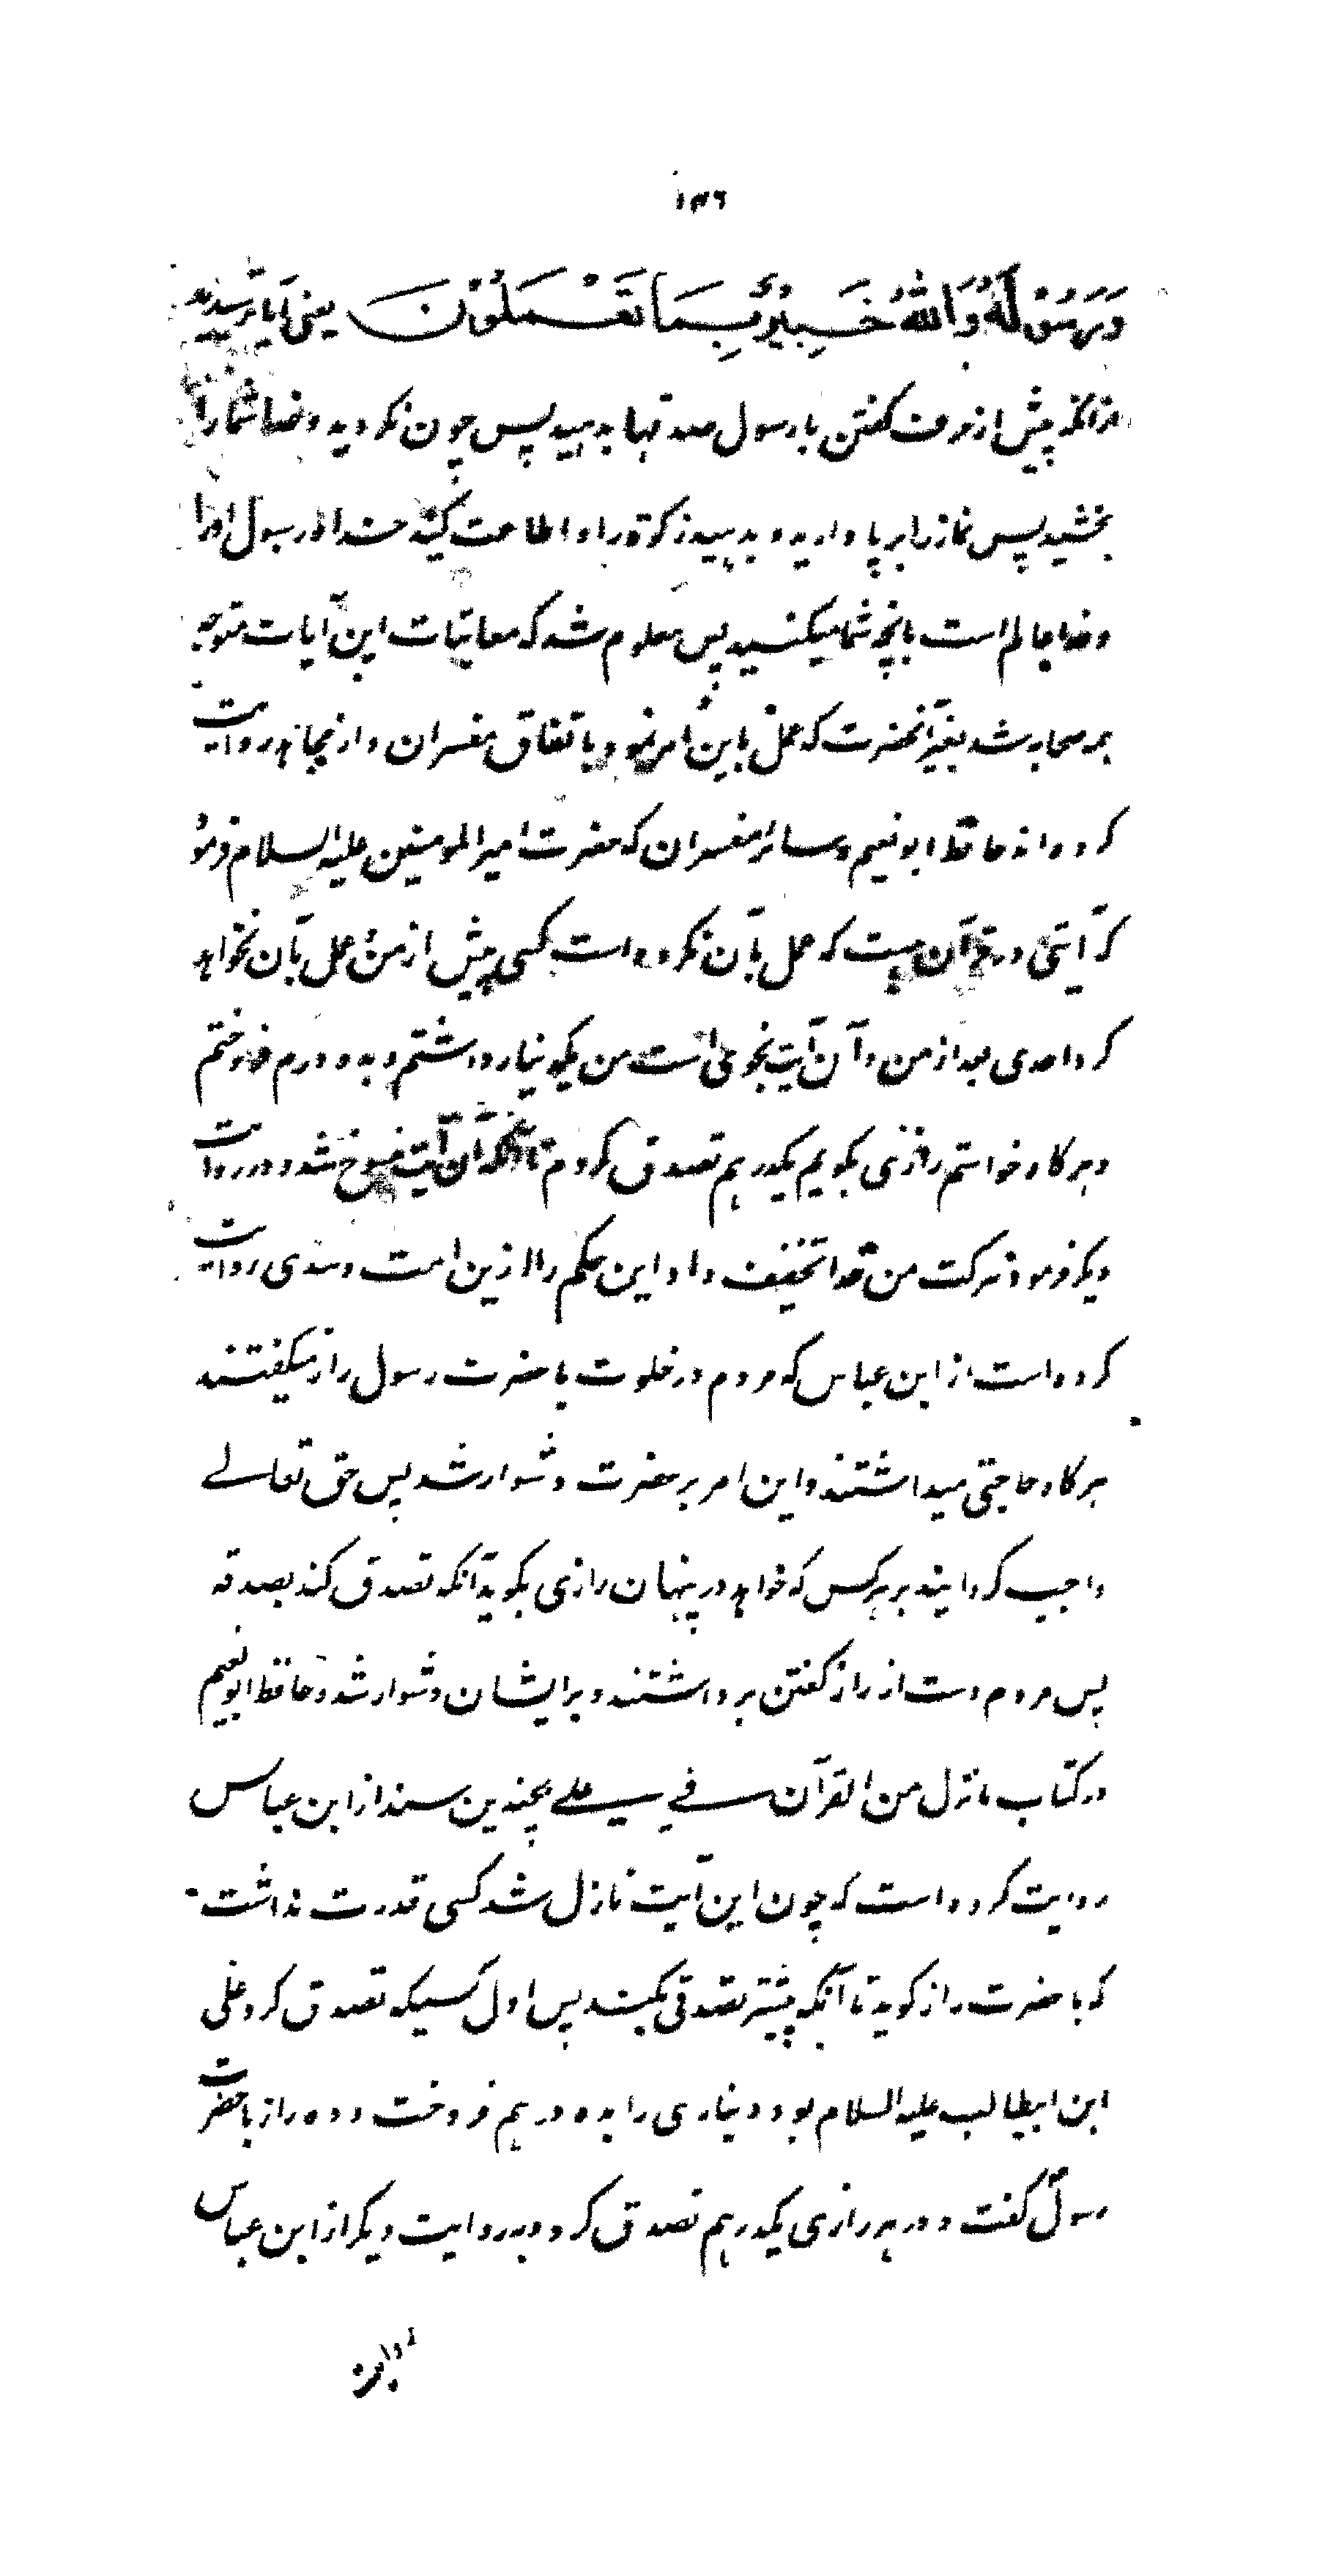 ۱۳۶
وَرَسُوْلَهُ وَاللهُ خَبِیْرٌ بِمَا تَعْمَلُوْنَ یعنی آیا ترسیدید
ازانکه پیش از حرف کفتن با رسول صدقها بدهید پس چون نکردید و خدا شما را
بخشید پس نماز را برپا دارید و بدهید زکوة را و اطاعت کنید خدا و رسول او را
و خدا عالم است بانچه شما میکنید پس معلوم شد که معاتبات این آیات متوجه
همه صحابه شد بغیر آنحضرت که عمل باین امر نمود باتفاق مفسران و از مجاهد روایت
کرده اند حافظ ابو نعیم و سائر مفسران که حضرت امیر المومنین علیه السلام فرمود
که آیتی در قرآن هست که عمل بآن نکرده است کسی پیش از من و عمل بآن نخواهد
کرد احدی بعد از من و آن آیت نجوی است من یک دینار داشتم و به ده درم فروختم
و هرکاه خواستم رازی بکویم یکدرهم تصدق کردم تا آنکه آن آیت منسوخ شد و در روایت
دیکر فرمود ببرکت من خدا تخفیف داد این حکم را ازین امت و سدی روایت
کرده است از ابن عباس که مردم در خلوت با حضرت رسول راز میکفتند
هرکاه حاجتی میداشتند و این امر بر حضرت دشوار شد پس حق تعالے
واجب کردانید بر هرکس که خواهد در پنهان رازی بکوید آنکه تصدق کند بصدقه
پس مردم دست از راز کفتن برداشتند و بر ایشان دشوار شد و حافظ ابو نعیم
در کتاب ما نزل من القرآن فے علے بچندین سند از ابن عباس
روایت کرده است که چون این آیت نازل شد کسی قدرت نداشت
که با حضرت راز کوید تا آنکه پیشتر تصدقی بکند پس اول کسیکه تصدق کرد علی
ابن ابیطالب علیه السلام بود دیناری را بده درهم فروخت و ده راز با حضرت
رسول کفت و در هر رازی یکدرهم تصدق کرد و بروایت دیکر از ابن عباس